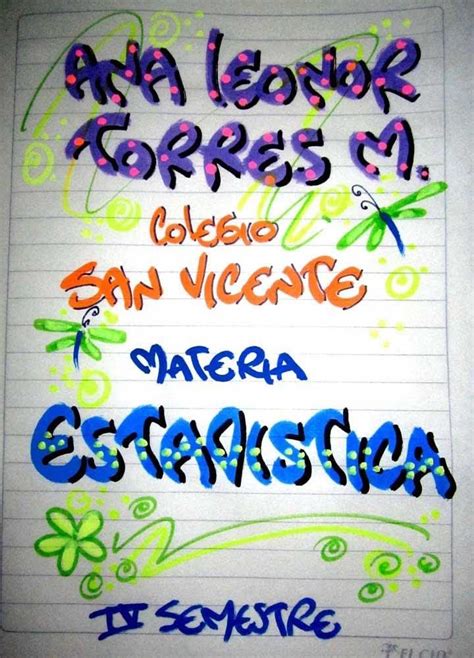 ANA LEONOR
TORRES M.
COLEGIO
SAN VICENTE
MATERIA
ESTADISTICA
IV SEMESTRE